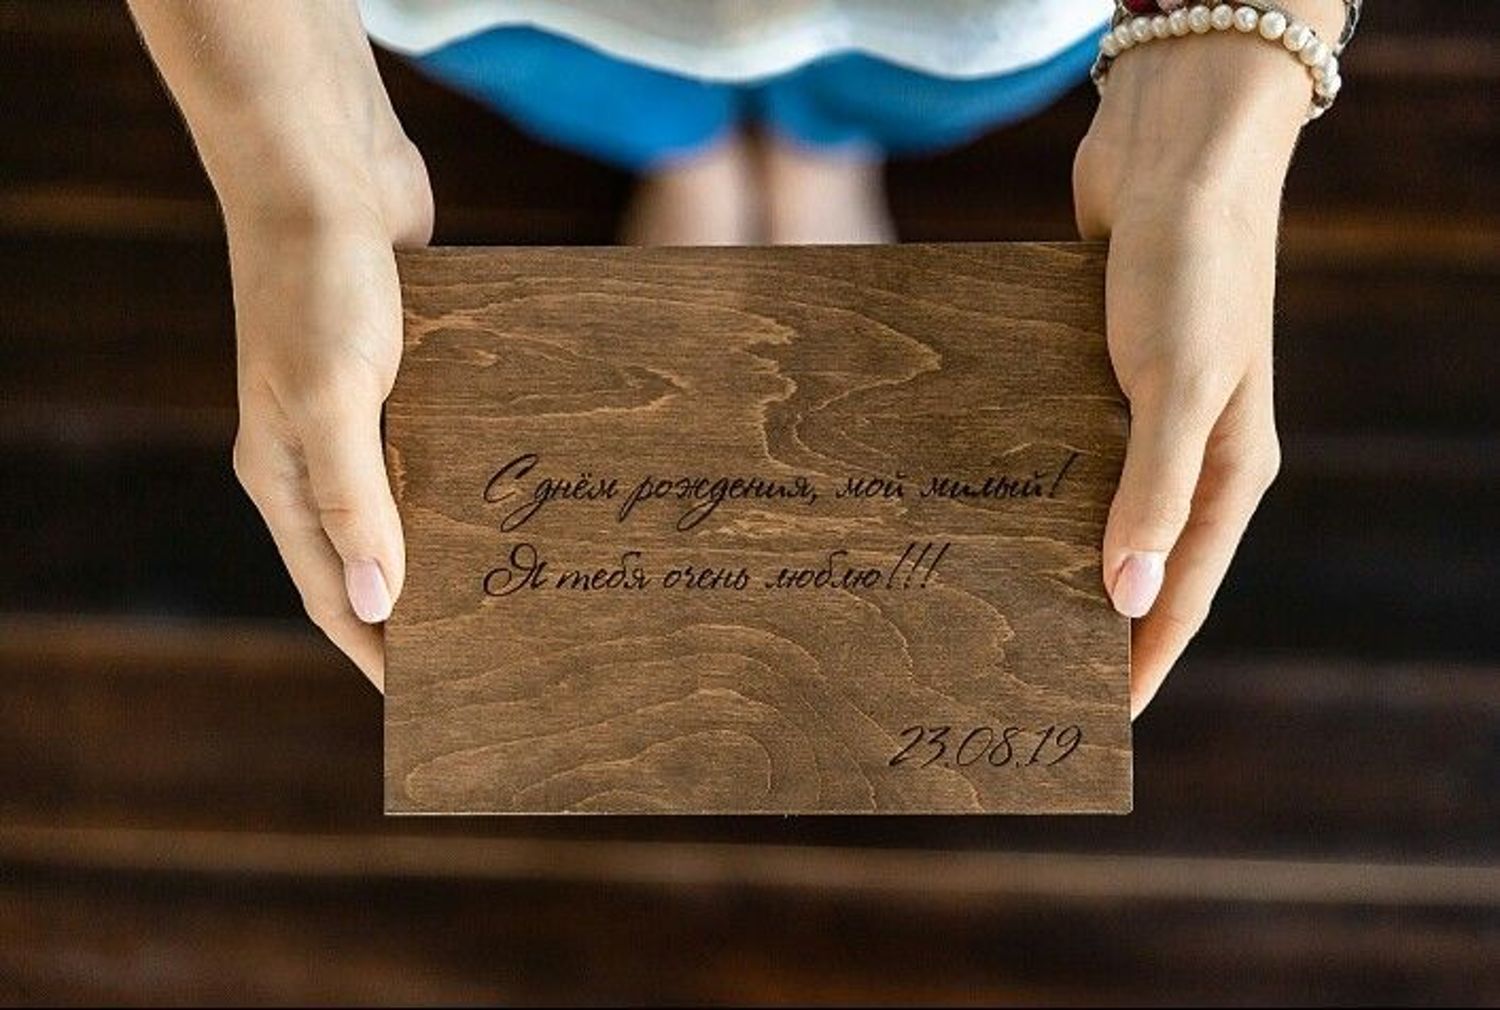 С днём рождения, мой милый!
Я тебя очень люблю!!!
23.08.19